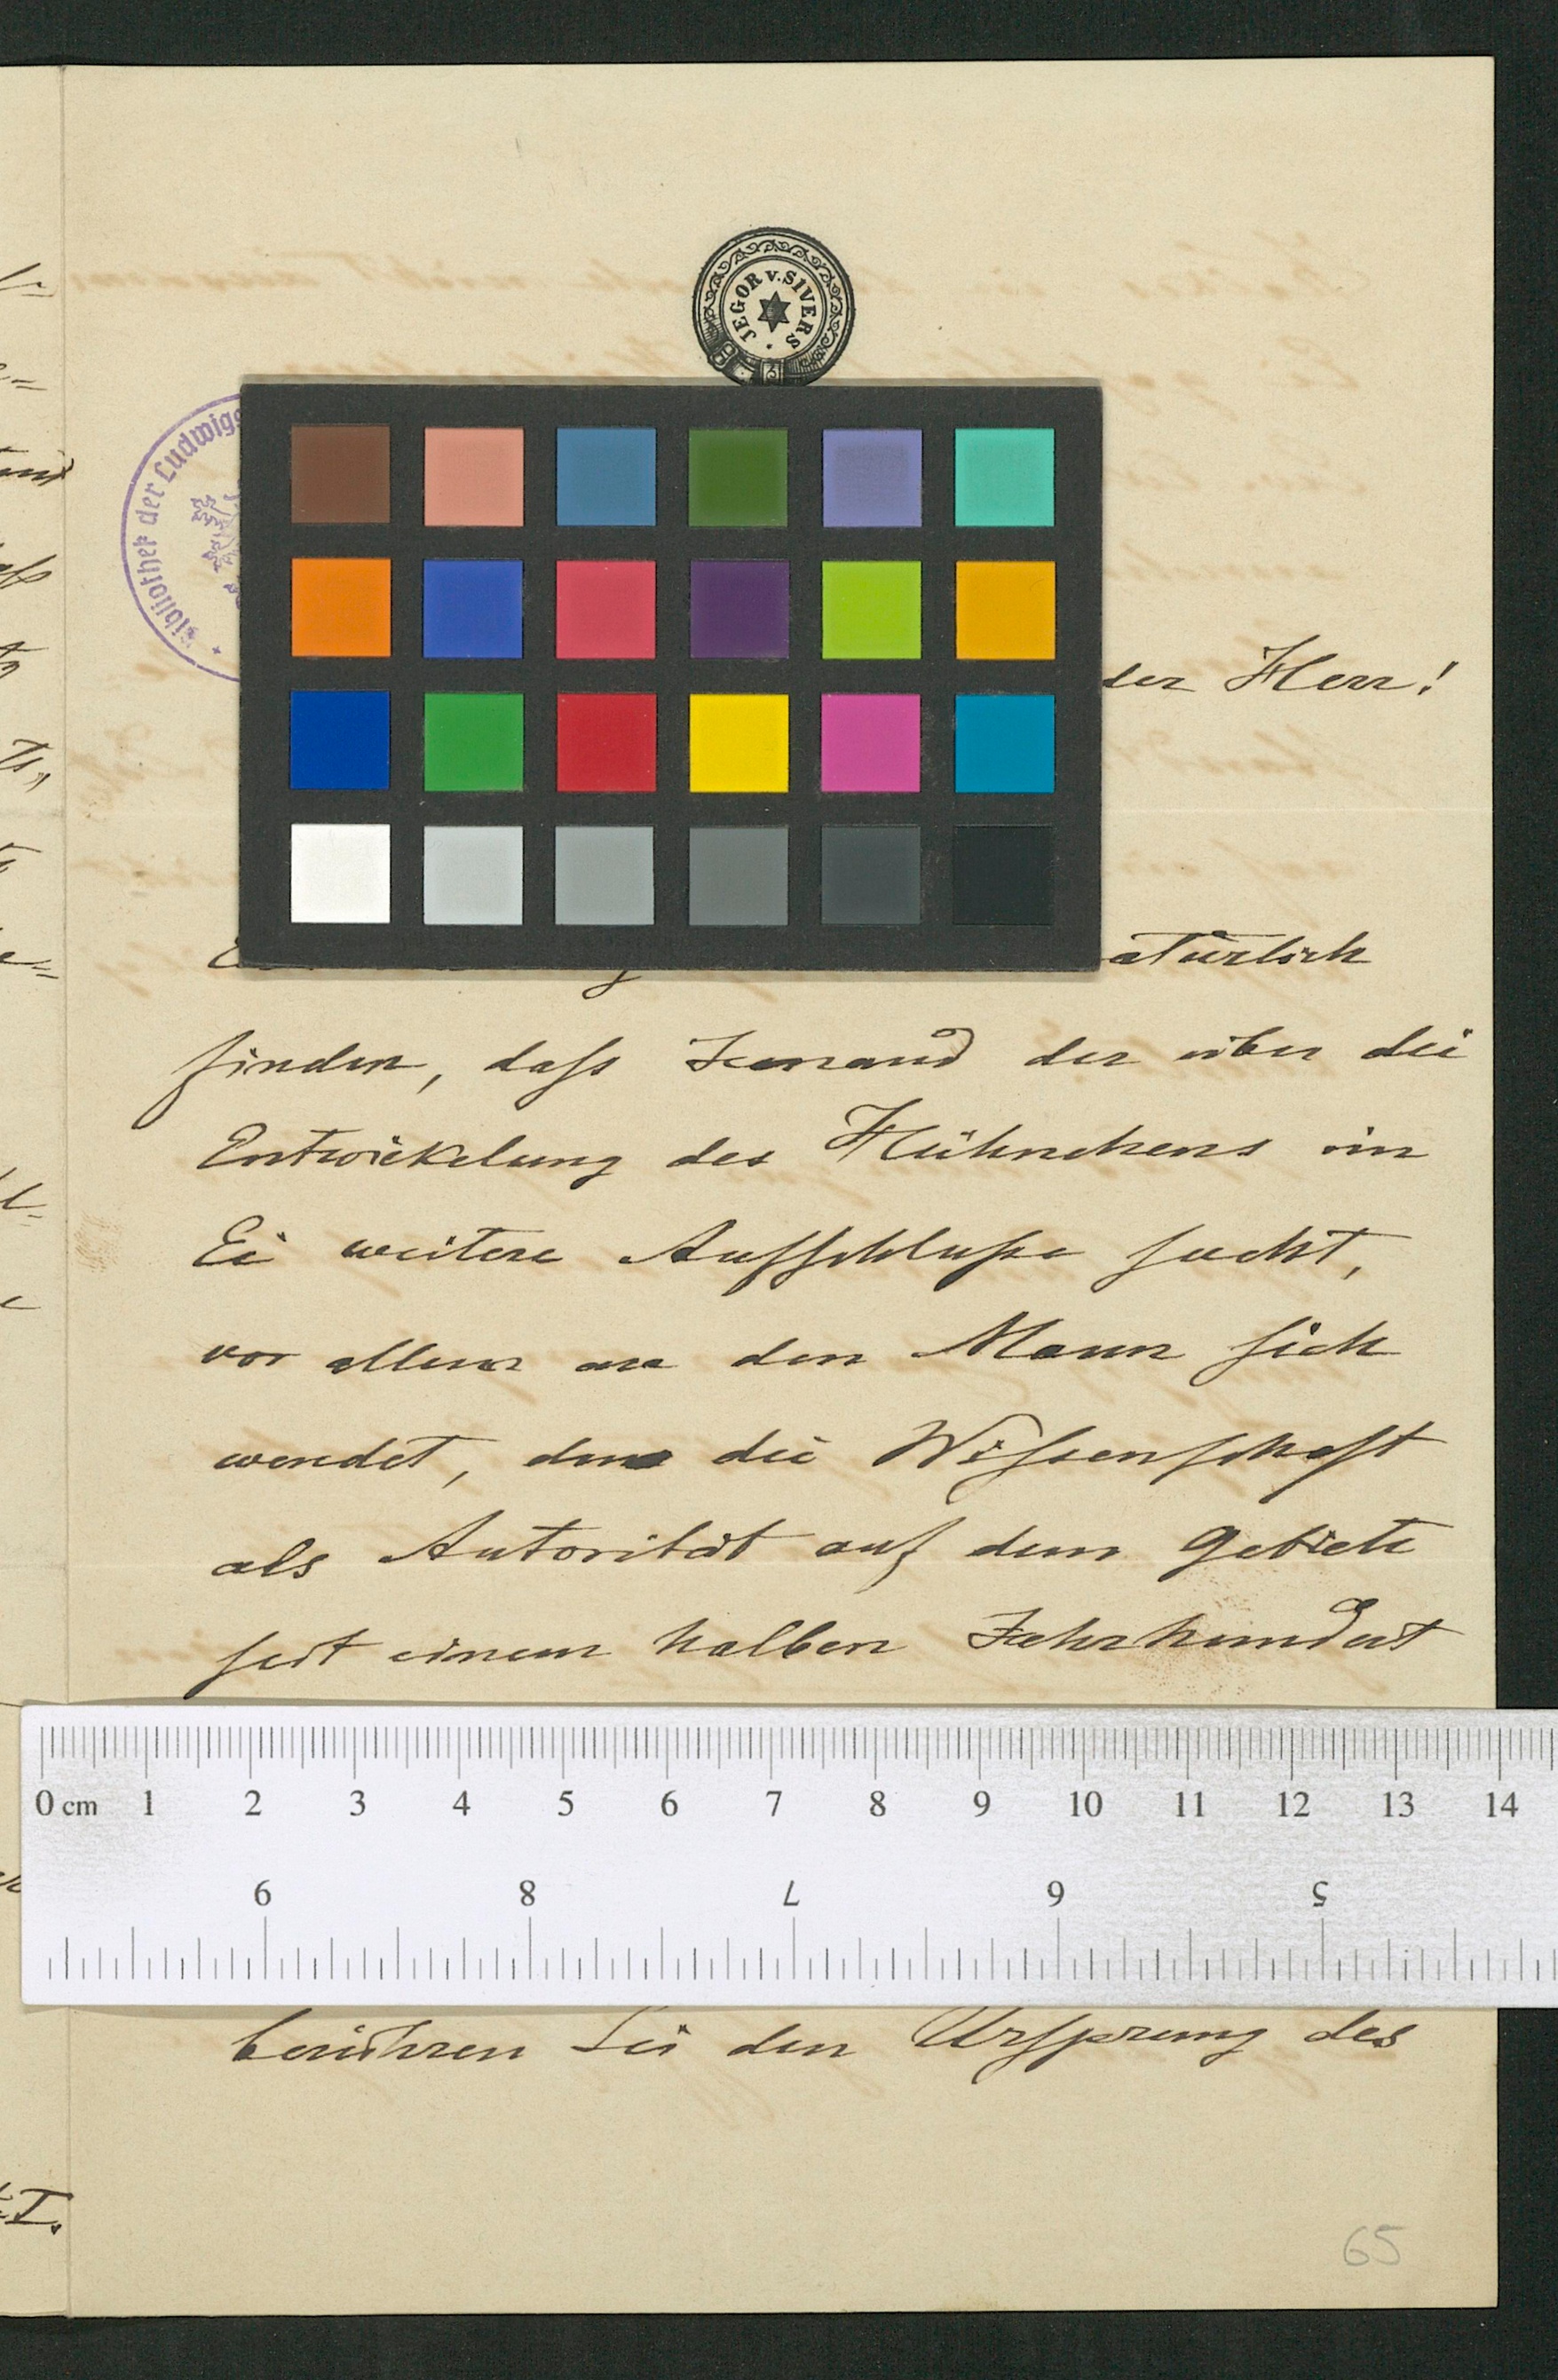 JEGOR v. SIVERS
Bibliothek der Ludwigs
der Herr!
atürlich
finden, dass Jemand der über die
Entwickelung des Hühnchens im
Ei weitere Aufschlusse sucht,
vor allem an den Mann sich
wendet, den die Wissenschaft
als Autorität auf dem Gebiete
seit einem halben Jahrhundert
0 cm 1 2 3 4 5 6 7 8 9 10 11 12 13 14
9 8 7 6 5
berühren Sie den Ursprung des
65